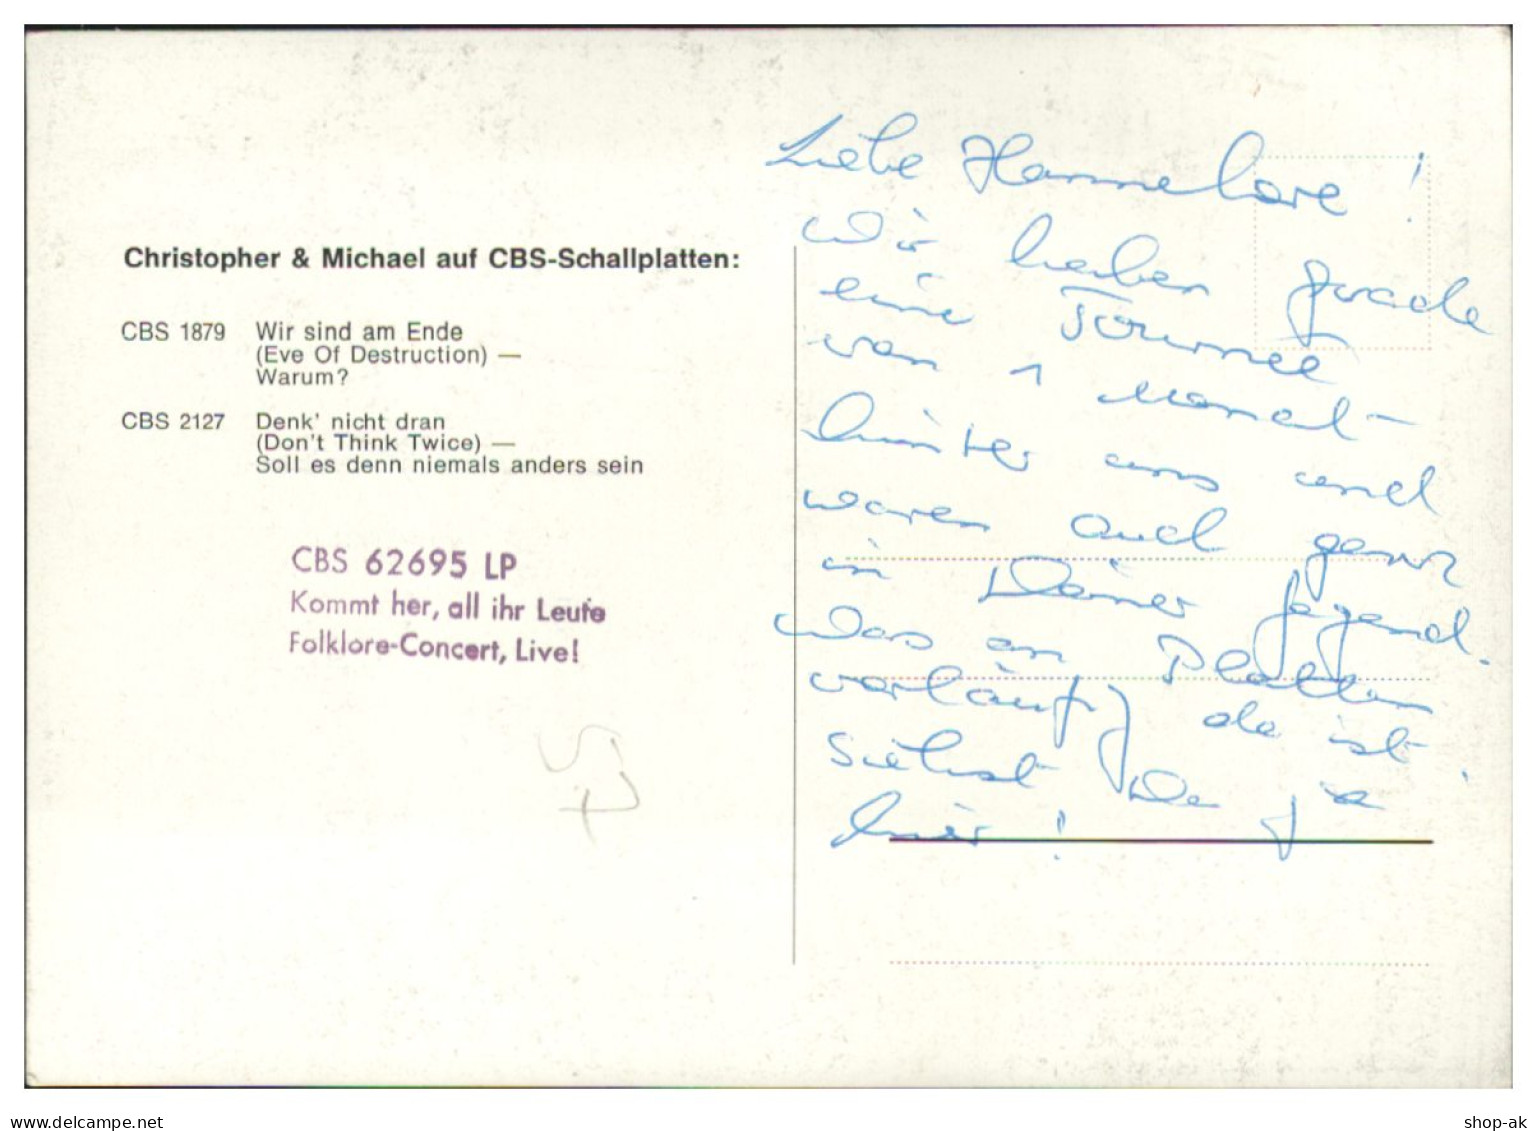 Christopher & Michael auf CBS-Schallplatten:
CBS 1879 Wir sind am Ende
(Eve Of Destruction) —
Warum?
CBS 2127 Denk' nicht dran
(Don't Think Twice) —
Soll es denn niemals anders sein
CBS 62695 LP
Kommt her, all ihr Leute
Folklore-Concert, Live!
Liebe Hannelore!
Wir haben grade
eine Tournee
von 1 Monat
hinter uns und
waren auch ganz
in Deiner Gegend.
Was an Platten
vorläufig da ist,
siehst Du ja
hier!
delcampe.net
shop-ak